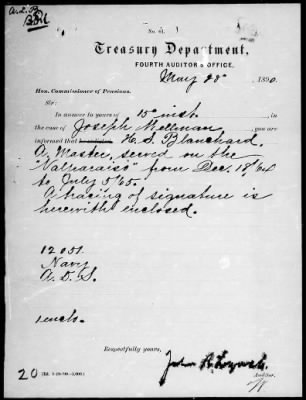 A.L.B.
No. 61.
Treasury Department,
FOURTH AUDITOR'S OFFICE,
May 28" 1890.
Hon. Commissioner of Pensions.
Sir:
In answer to yours of 15" inst.
in the case of Joseph Wellman, you are
informed that H. S. Blanchard,
A. Master, served on the
"Valparaiso" from Dec. 18/64
to July 5/65.
A tracing of signature is
herewith enclosed.
12051.
Navy
A.D.S.
1 encl.
Respectfully yours,
John R.
Auditor.
20